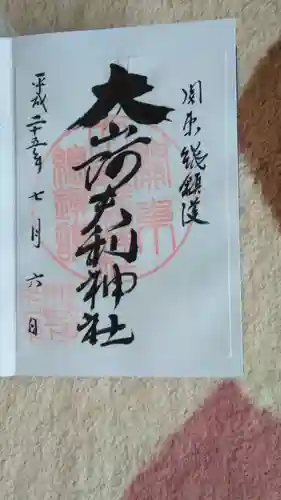 関東総鎮護
大山阿夫利神社
平成二十五年七月六日